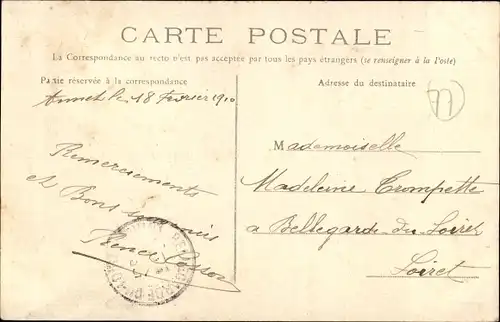 CARTE POSTALE
La Correspondance au recto n'est pas acceptée par tous les pays étrangers (se renseigner à la Poste)
Partie réservée à la correspondance
Adresse du destinataire
Annet le 18 Février 1910
77
Remerciements
et Bons souvenirs
Mademoiselle
Madeleine Trompette
a Bellegarde du Loiret
Loiret